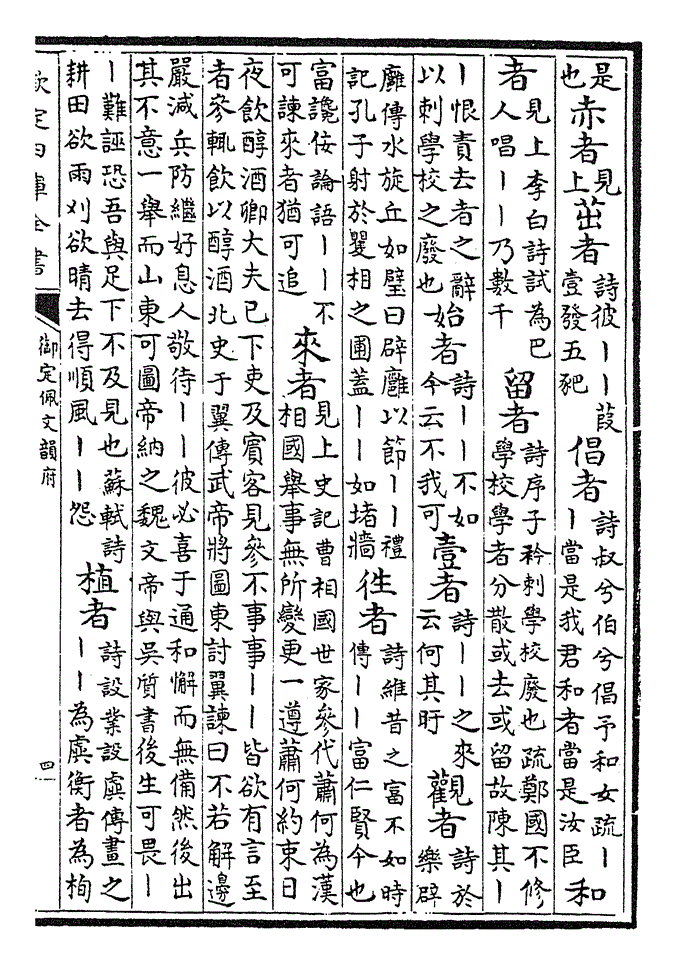 是也赤者見上茁者詩彼丨丨葭壹發五豝倡者詩叔兮伯兮倡予和女疏丨和丨當是我君和者當是汝臣和
者見上李白詩試為巴人唱丨丨乃數千留者詩序子衿刺學校廢也疏鄭國不修學校學者分散或去或留故陳其丨
丨恨責去者之辭以刺學校之廢也始者詩丨丨不如今云不我可壹者詩丨丨之來云何其盱觀者詩於樂辟
廱傳水旋丘如璧曰辟廱以節丨丨禮記孔子射於矍相之圃蓋丨丨如堵牆徃者詩維昔之富不如時傳丨丨富仁賢今也
富讒佞論語丨丨不可諫來者猶可追來者見上史記曹相國世家參代蕭何為漢相國舉事無所變更一遵蕭何約束日
夜飲醇酒卿大夫已下吏及賓客見參不事事丨丨皆欲有言至者參輒飲以醇酒北史于翼傳武帝將圖東討翼諫曰不若解邊
嚴減兵防繼好息人敬待丨丨彼必喜于通和懈而無備然後出其不意一舉而山東可圖帝納之魏文帝與吳質書後生可畏丨
丨難誣恐吾與足下不及見也蘇軾詩耕田欲雨刈欲晴去得順風丨丨怨植者詩設業設虡傳畫之丨丨為虡衡者為栒
欽定四庫全書
御定佩文韻府
四